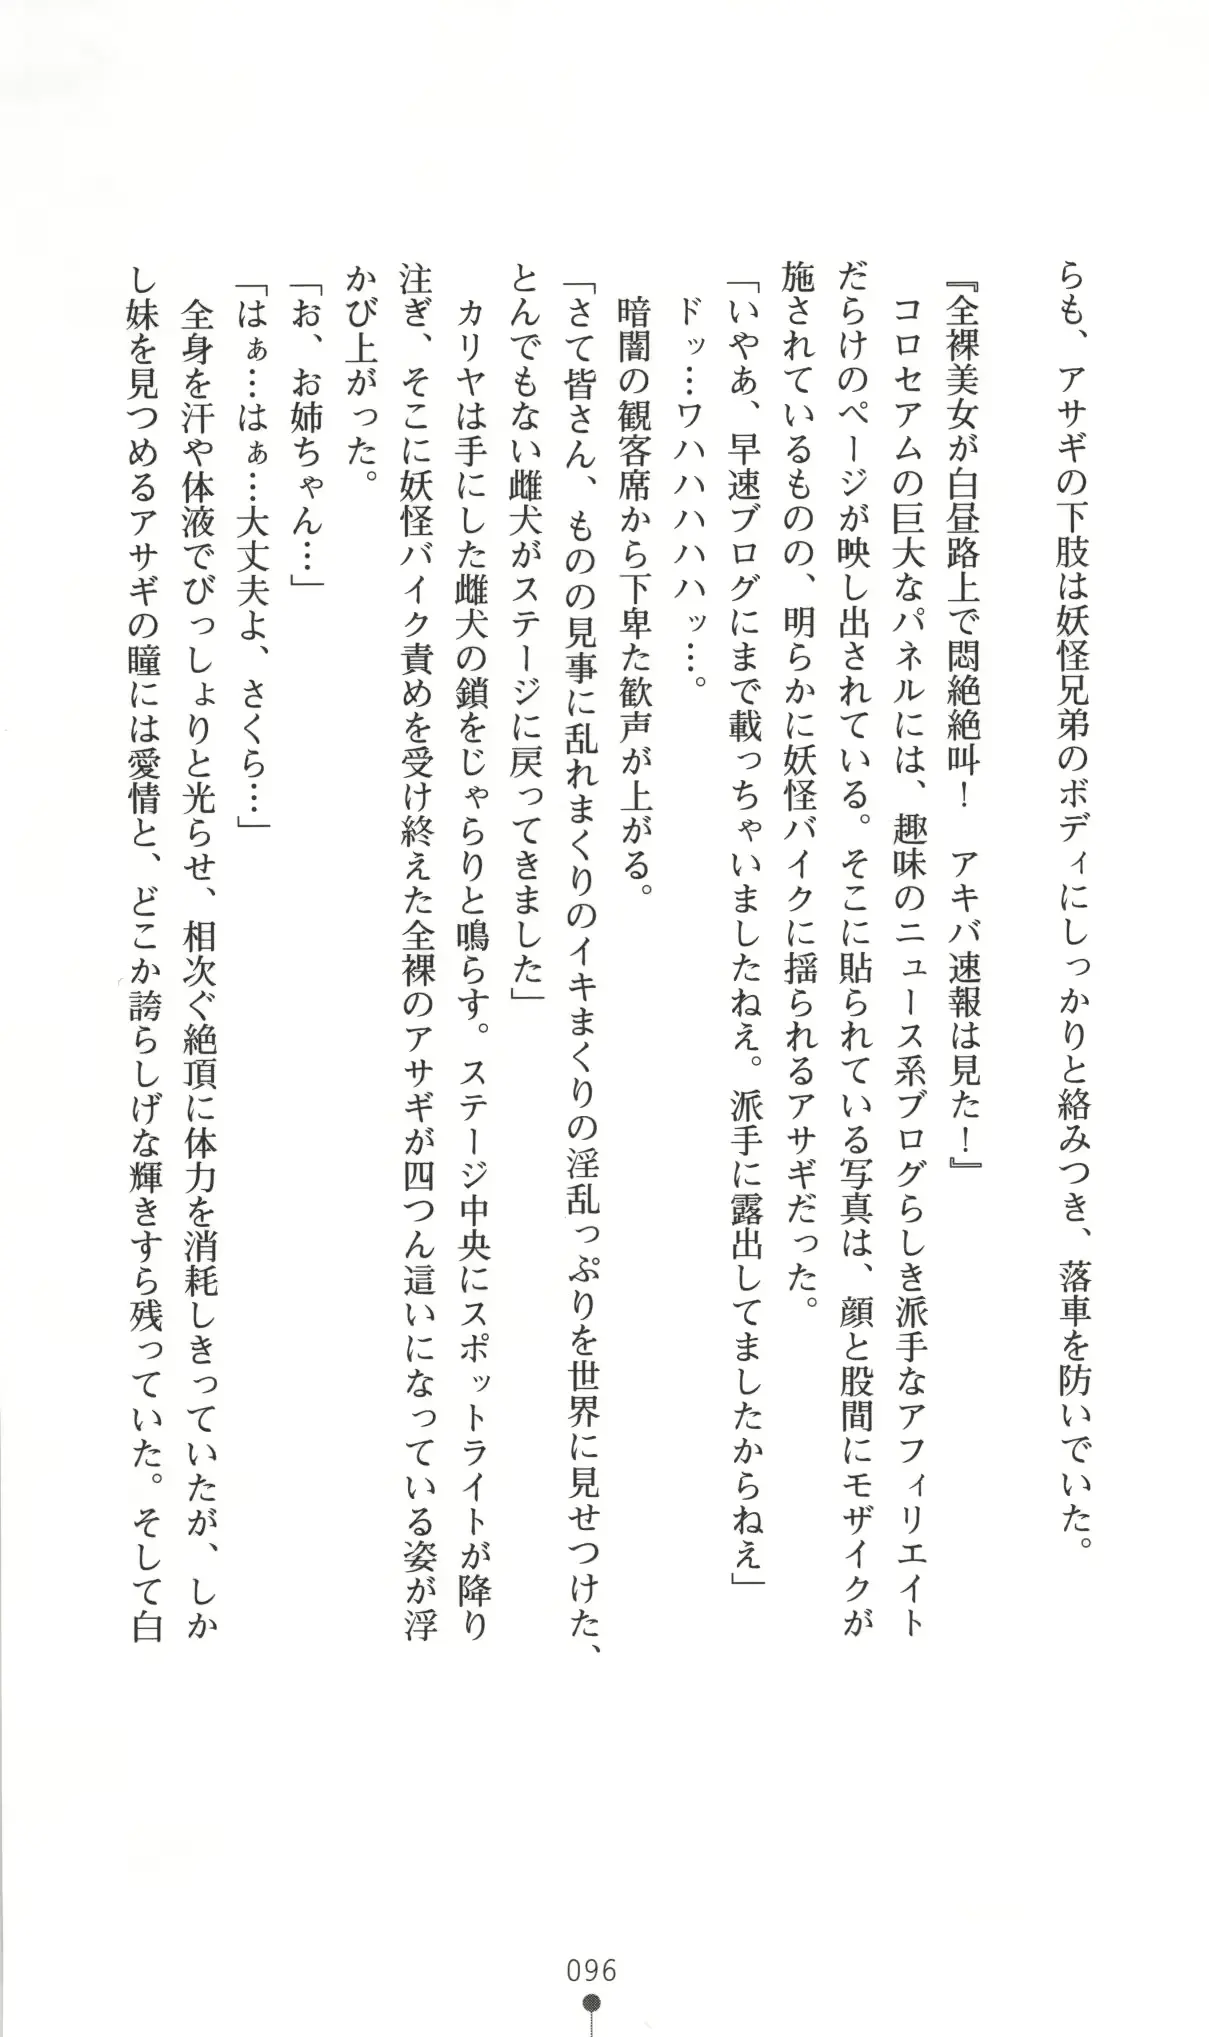 らも、アサギの下肢は妖怪兄弟のボディにしっかりと絡みつき、落車を防いでいた。
『全裸美女が白昼路上で悶絶絶叫！　アキバ速報は見た！』
　コロセアムの巨大なパネルには、趣味のニュース系ブログらしき派手なアフィリエイト
だらけのページが映し出されている。そこに貼られている写真は、顔と股間にモザイクが
施されているものの、明らかに妖怪バイクに揺られるアサギだった。
「いやあ、早速ブログにまで載っちゃいましたねえ。派手に露出してましたからねえ」
　ドッ…ワハハハハッ…。
　暗闇の観客席から下卑た歓声が上がる。
「さて皆さん、ものの見事に乱れまくりのイキまくりの淫乱っぷりを世界に見せつけた、
とんでもない雌犬がステージに戻ってきました」
　カリヤは手にした雌犬の鎖をじゃらりと鳴らす。ステージ中央にスポットライトが降り
注ぎ、そこに妖怪バイク責めを受け終えた全裸のアサギが四つん這いになっている姿が浮
かび上がった。
「お、お姉ちゃん…」
「はぁ…はぁ…大丈夫よ、さくら…」
　全身を汗や体液でびっしょりと光らせ、相次ぐ絶頂に体力を消耗しきっていたが、しか
し妹を見つめるアサギの瞳には愛情と、どこか誇らしげな輝きすら残っていた。そして白
096